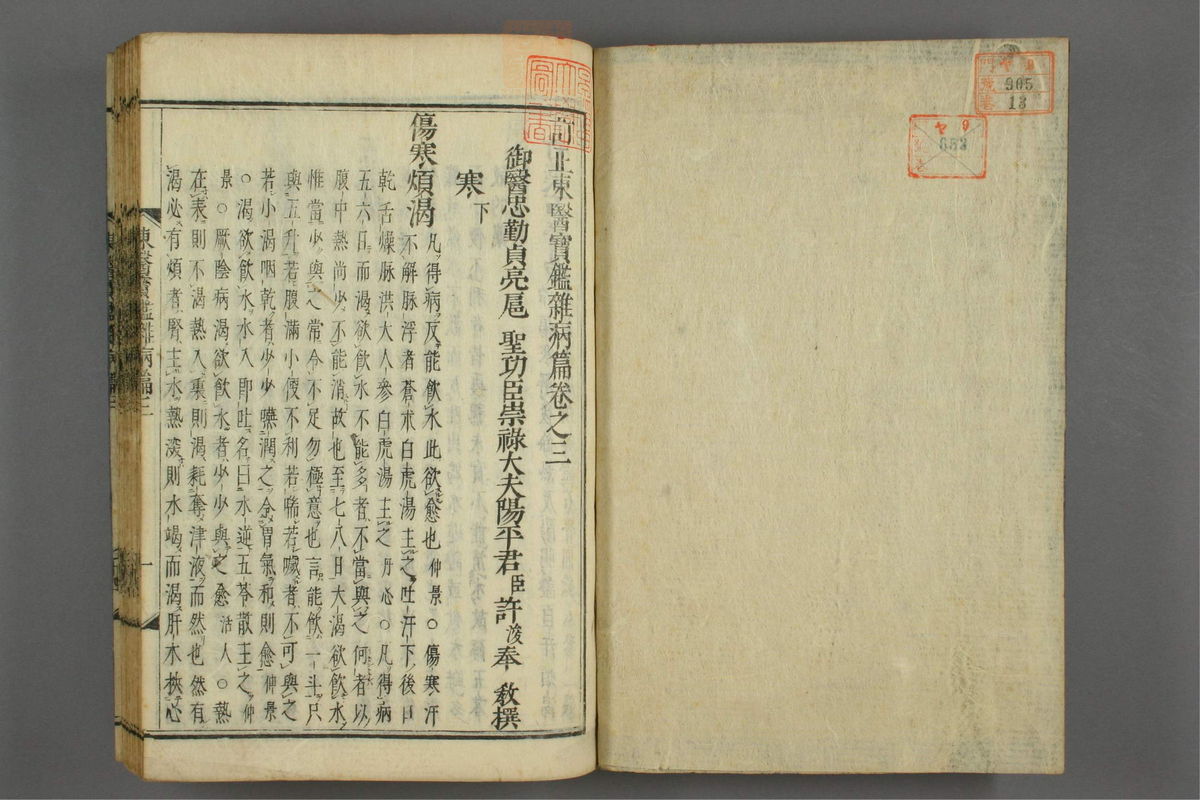 訂正東醫寶鑑雜病篇卷之三
御醫忠勤貞亮扈 聖功臣崇祿大夫陽平君臣許浚奉 敎撰
寒下
傷寒煩渴
凡得病反能飲水此欲愈也仲景○傷寒汗
不解脉浮者蒼朮白虎湯主之吐汗下後口
乾舌燥脉洪大人參白虎湯主之丹心○凡得病
五六日而渴欲飲水不能多者不當與之何者以
腹中熱尚少不能消故也至七八日大渴欲飲水
惟當少與之常令不足勿極意也言能飲一斗只
與五升若腹滿小便不利若喘若噦者不可與之
若小渴咽乾者少少嚥潤之令胃氣和則愈仲景
○渴欲飲水水入即吐名曰水逆五苓散主之仲
景○厥陰病渴欲飲水者少少與之愈活人○熱
在表則不渴熱入裏則渴耗奪津液而然也然有
渴必有煩者腎主水熱深則水竭而渴肝木挾心
東醫寶鑑雜病篇三
一
905
13
ヤ9
653